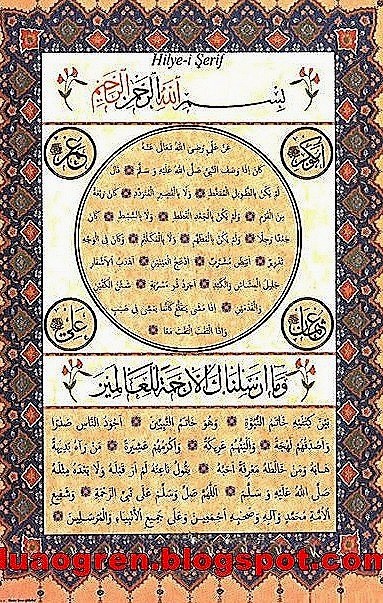 Hilye-i Şerif
بِسْمِ اللهِ الرَّحْمٰنِ الرَّحِيمِ
عمر
ابوبكر
عَنْ عَلِيٍّ رَضِيَ اللهُ تَعَالَى عَنْهُ
كَانَ إِذَا وَصَفَ النَّبِيَّ صَلَّى اللهُ عَلَيْهِ وَسَلَّمَ قَالَ
لَمْ يَكُنْ بِالطَّوِيلِ الْمُمَّغِطِ وَلَا بِالْقَصِيرِ الْمُتَرَدِّدِ وَكَانَ رَبْعَةً
مِنَ الْقَوْمِ وَلَمْ يَكُنْ بِالْجَعْدِ الْقَطَطِ وَلَا بِالسَّبْطِ كَانَ
جَعْدًا رَجِلًا وَلَمْ يَكُنْ بِالْمُطَهَّمِ وَلَا بِالْمُكَلْثَمِ وَكَانَ فِي الْوَجْهِ
تَدْوِيرٌ أَبْيَضُ مُشْرَبٌ أَدْعَجُ الْعَيْنَيْنِ أَهْدَبُ الْأَشْفَارِ
جَلِيلُ الْمُشَاشِ وَالْكَتَدِ أَجْرَدُ ذُو مَسْرُبَةٍ شَثْنُ الْكَفَّيْنِ
وَالْقَدَمَيْنِ إِذَا مَشَى يَتَقَلَّعُ كَأَنَّمَا يَمْشِي فِي صَبَبٍ
وَإِذَا الْتَفَتَ الْتَفَتَ مَعًا
علي
عثمان
وَمَا أَرْسَلْنَاكَ إِلَّا رَحْمَةً لِلْعَالَمِينَ
بَيْنَ كَتِفَيْهِ خَاتَمُ النُّبُوَّةِ وَهُوَ خَاتَمُ النَّبِيِّينَ أَجْوَدُ النَّاسِ صَدْرًا
وَأَصْدَقُهُمْ لَهْجَةً وَأَلْيَنُهُمْ عَرِيكَةً وَأَكْرَمُهُمْ عَشِيرَةً مَنْ رَآهُ بَدِيهَةً
هَابَهُ وَمَنْ خَالَطَهُ مَعْرِفَةً أَحَبَّهُ يَقُولُ نَاعِتُهُ لَمْ أَرَ قَبْلَهُ وَلَا بَعْدَهُ مِثْلَهُ
صَلَّى اللهُ عَلَيْهِ وَسَلَّمَ اللَّهُمَّ صَلِّ وَسَلِّمْ عَلَى نَبِيِّ الرَّحْمَةِ وَشَفِيعِ
الْأُمَّةِ مُحَمَّدٍ وَآلِهِ وَصَحْبِهِ أَجْمَعِينَ وَعَلَى جَمِيعِ الْأَنْبِيَاءِ وَالْمُرْسَلِينَ
duaogren.blogspot.com